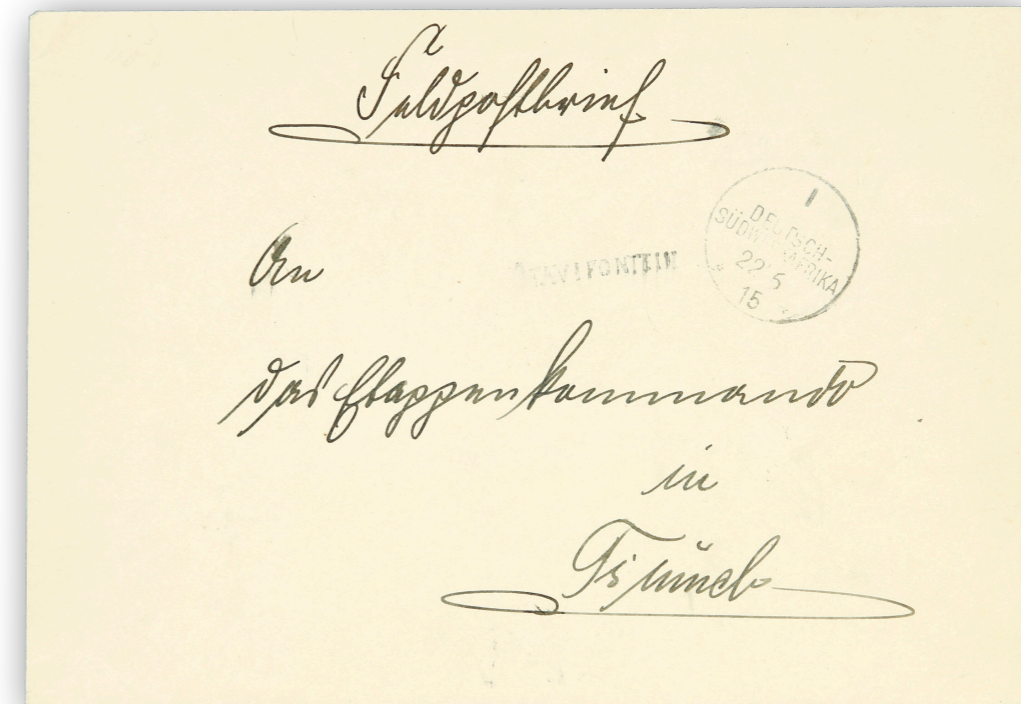 Feldpostbrief
An
OTAVIFONTEIN
DEUTSCH-
SÜDWESTAFRIKA
22 5
15
das Etappenkommando
in
Tsumeb